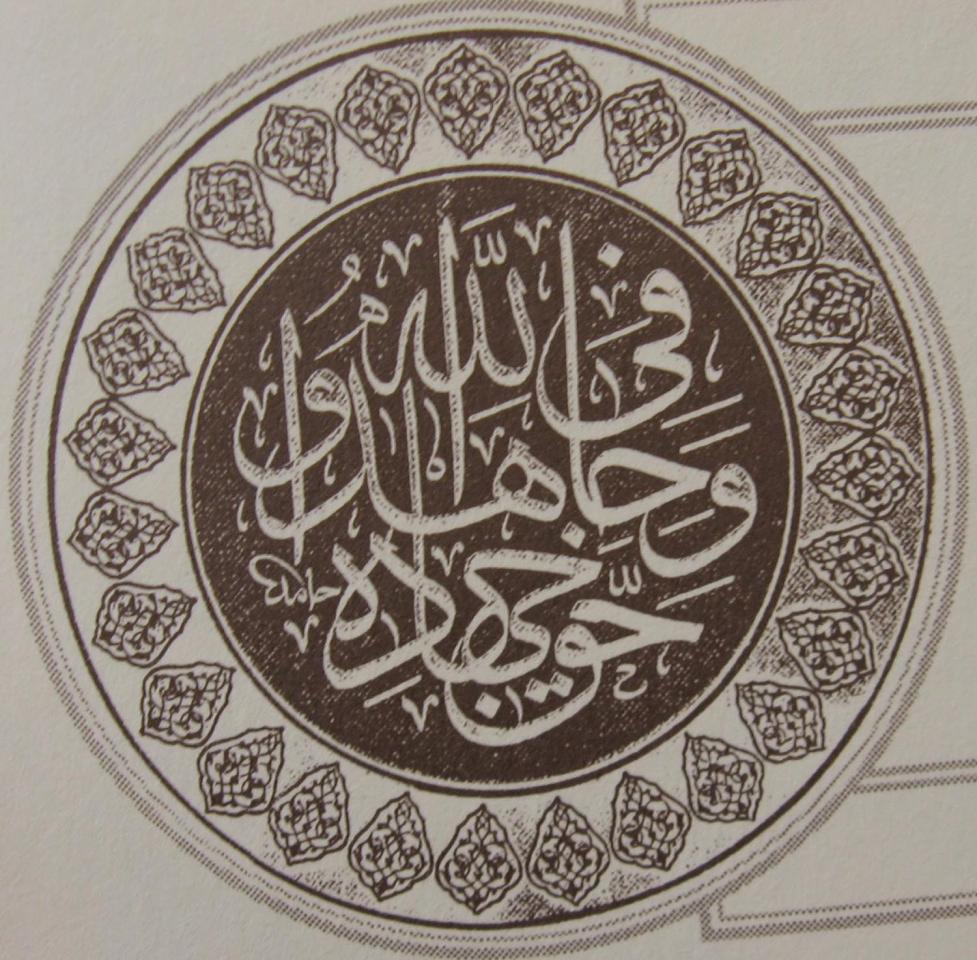 وَجَاهِدُوا فِي اللّٰهِ
حَقَّ جِهَادِهِ
حامد